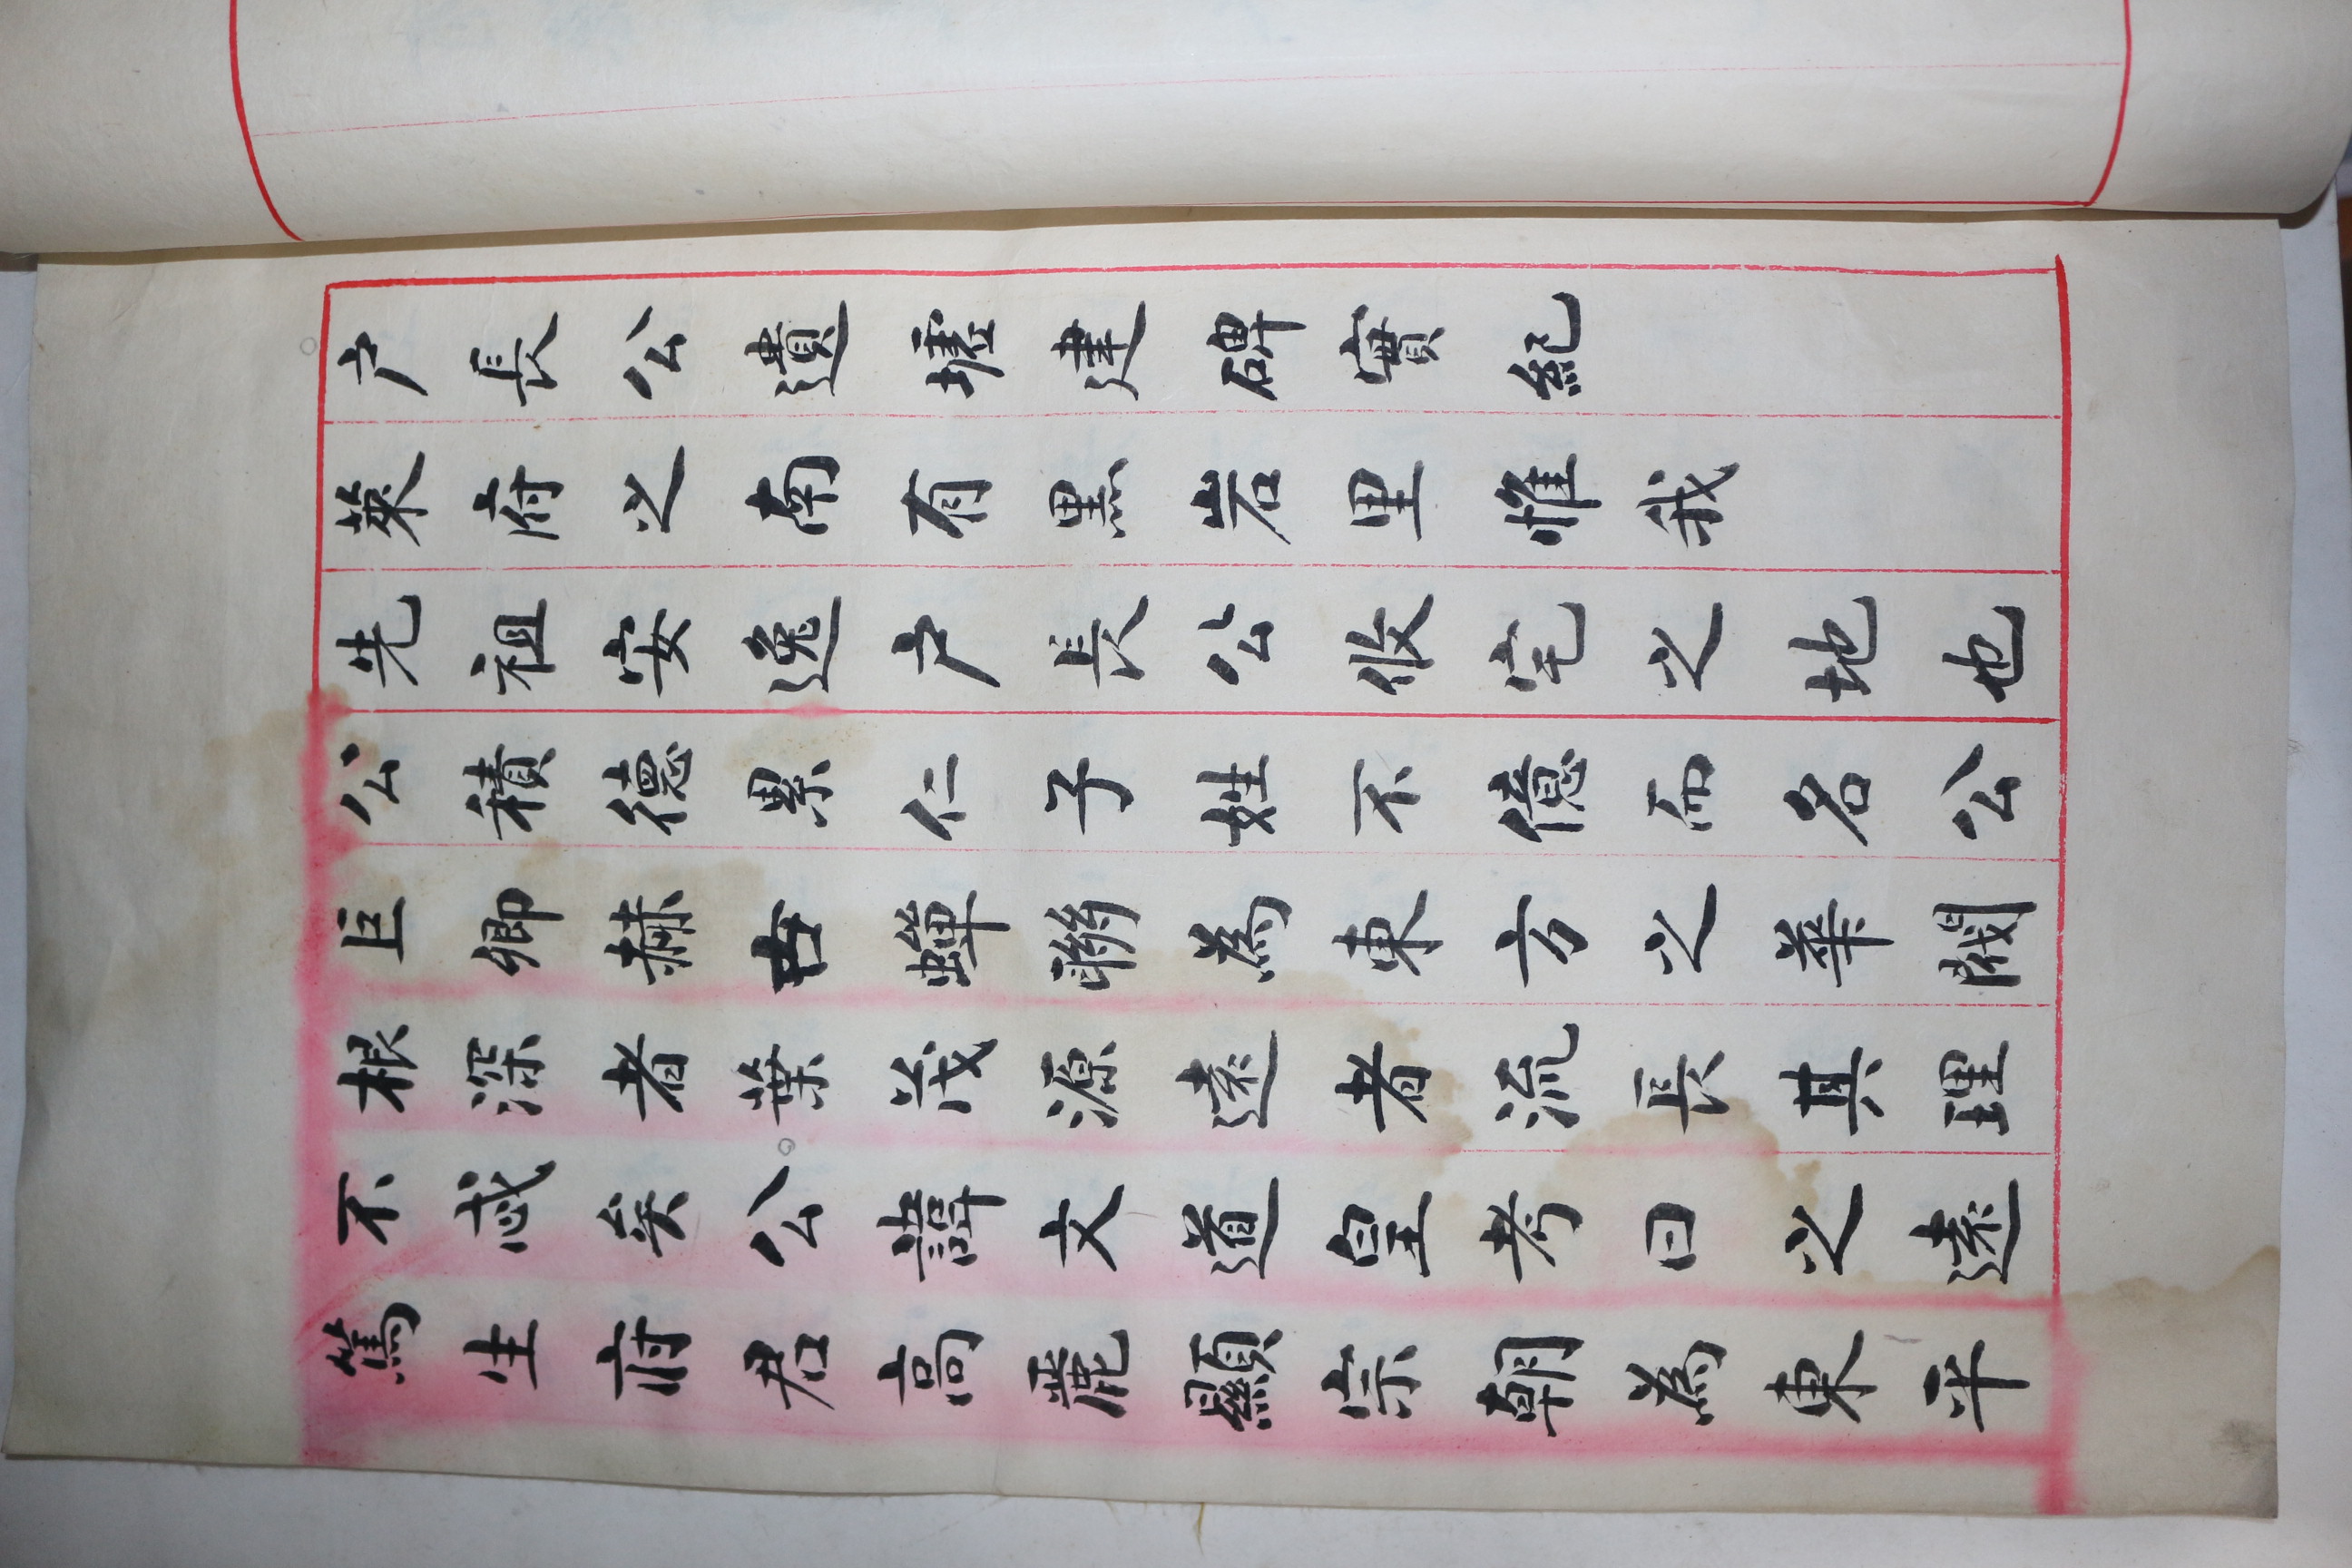 户長公遺墟建碑實紀
萊府之南有黒岩里惟我
先祖安逸户長公攸宅之地也
公積德累仁子姓不億而名公
巨卿赫古蟬聯為東方之華閥
根深者葉茂源遠者流長其理
不忒矣公諱文道皇考曰之遠
篤生府君高麗顯宗朝為東平